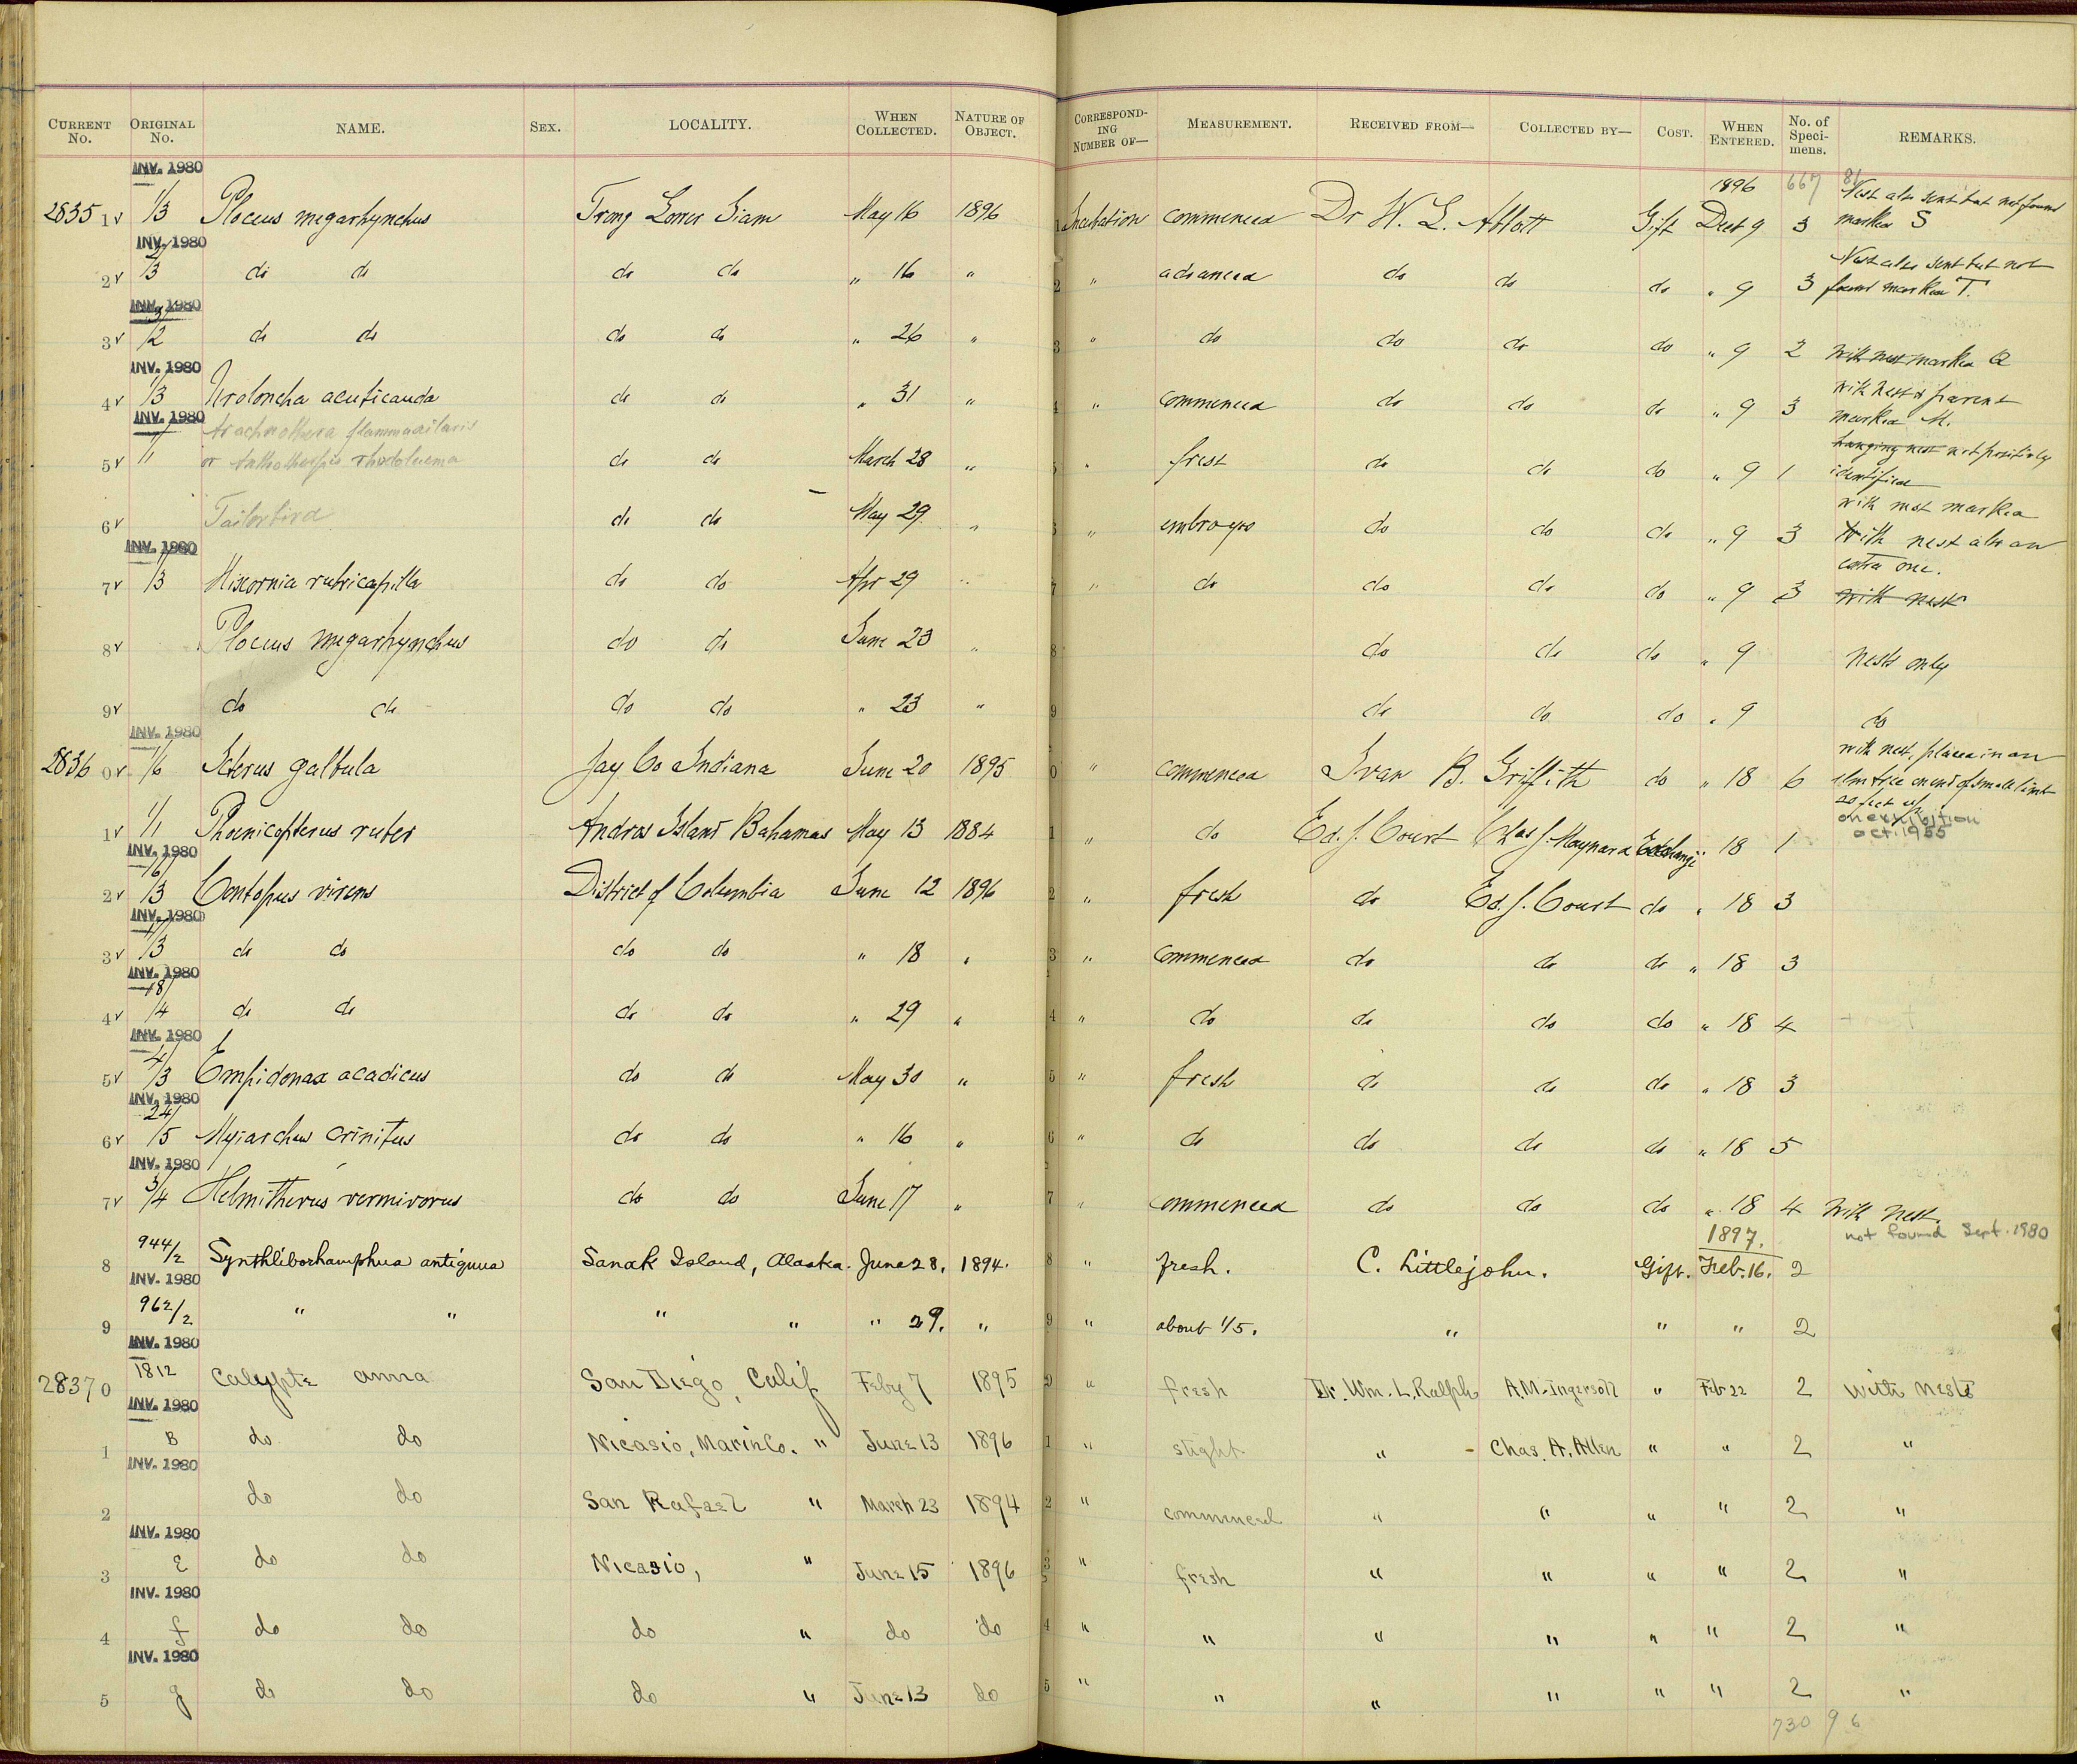 CURRENT No. ORIGINAL No. NAME. SEX. LOCALITY. WHEN COLLECTED. NATURE OF OBJECT. CORRESPONDING NUMBER OF— MEASUREMENT. RECEIVED FROM— COLLECTED BY— COST. WHEN ENTERED. No. of Specimens. REMARKS.
INV. 1980 1896 667
Nest also sent but not found
28351 ✓ 1/3 Ploceus megarhynchus Trong Lower Siam May 16 1896 1 Incubation commenced Dr W. L. Abbott Gift Dect 9 3 marked S
INV. 1980
Nest also sent but not
2 ✓ 2/3 do do do do " 16 " 2 " advanced do do do " 9 3 found marked T.
INV. 1980
3 ✓ 3/2 do do do do " 26 " 3 " do do do do " 9 2 with nest marked Q
INV. 1980
with nest & parent
4 ✓ 1/3 Uroloncha acuticauda do do " 31 " 4 " commenced do do do " 9 3 marked M.
INV. 1980
Arachnothera flammaxilaris
hanging nest not positively
5 ✓ 1/1 or Anthothreptes rhodolaema do do March 28 " 5 " fresh do do do " 9 1 identified
with nest marked
6 ✓ Tailorbird do do May 29 " 6 " embroyos do do do " 9 3 With nest also an
INV. 1980
extra one.
7 ✓ 1/3 Mixornia rubricapilla do do Apr 29 " 7 " do do do do " 9 3 with nest
8 ✓ Ploceus megarhynchus do do June 23 " 8 do do do " 9 nests only
9 ✓ do do do do " 23 " 9 do do do " 9 do
INV. 1980
with nest, placed in an
28360 ✓ 1/6 Icterus galbula Jay Co Indiana June 20 1895 0 " commenced Ivan B. Griffith do " 18 6 elm tree on end of small limb
20 feet up.
on exhibition
oct. 1955
1 ✓ 1/1 Phoenicopterus ruber Andros Island Bahamas May 13 1884 1 " do Ed. J. Court Chas J. Maynard Exchange " 18 1
INV. 1980
2 ✓ 16/3 Contopus virens District of Columbia June 12 1896 2 " fresh do Ed. J. Court do " 18 3
INV. 1980
3 ✓ 17/3 do do do do " 18 " 3 " commenced do do do " 18 3
INV. 1980
4 ✓ 18/4 do do do do " 29 " 4 " do do do do " 18 4
INV. 1980
5 ✓ 4/3 Empidonax acadicus do do May 30 " 5 " fresh do do do " 18 3
INV. 1980
6 ✓ 24/5 Myiarchus crinitus do do " 16 " 6 " do do do do " 18 5
INV. 1980
7 ✓ 3/4 Helmitherus vermivorus do do June 17 " 7 " commenced do do do " 18 4 With nest.
1897. not found Sept. 1980
8 944/2 Synthliborhamphus antiquus Sanak Island, Alaska. June 28, 1894. 8 " fresh. C. Littlejohn. Gift. Feb. 16. 2
INV. 1980
9 962/2 " " " " " 29. " 9 " about 1/5. " " " 2
INV. 1980
28370 1812 Calypte anna San Diego, Calif Feby 7 1895 0 " fresh Dr. Wm. L. Ralph A.M. Ingersoll " Feb 22 2 with nests
INV. 1980
1 B do do Nicasio, Marin Co. " June 13 1896 1 " slight " Chas. A. Allen " " 2 "
INV. 1980
2 do do San Rafael " March 23 1894 2 " commenced " " " " 2 "
INV. 1980
3 E do do Nicasio, " June 15 1896 3 " fresh " " " " 2 "
INV. 1980
4 f do do do " do do 4 " " " " " " 2 "
INV. 1980
5 g do do do " June 13 do 5 " " " " " " 2 "
730 96